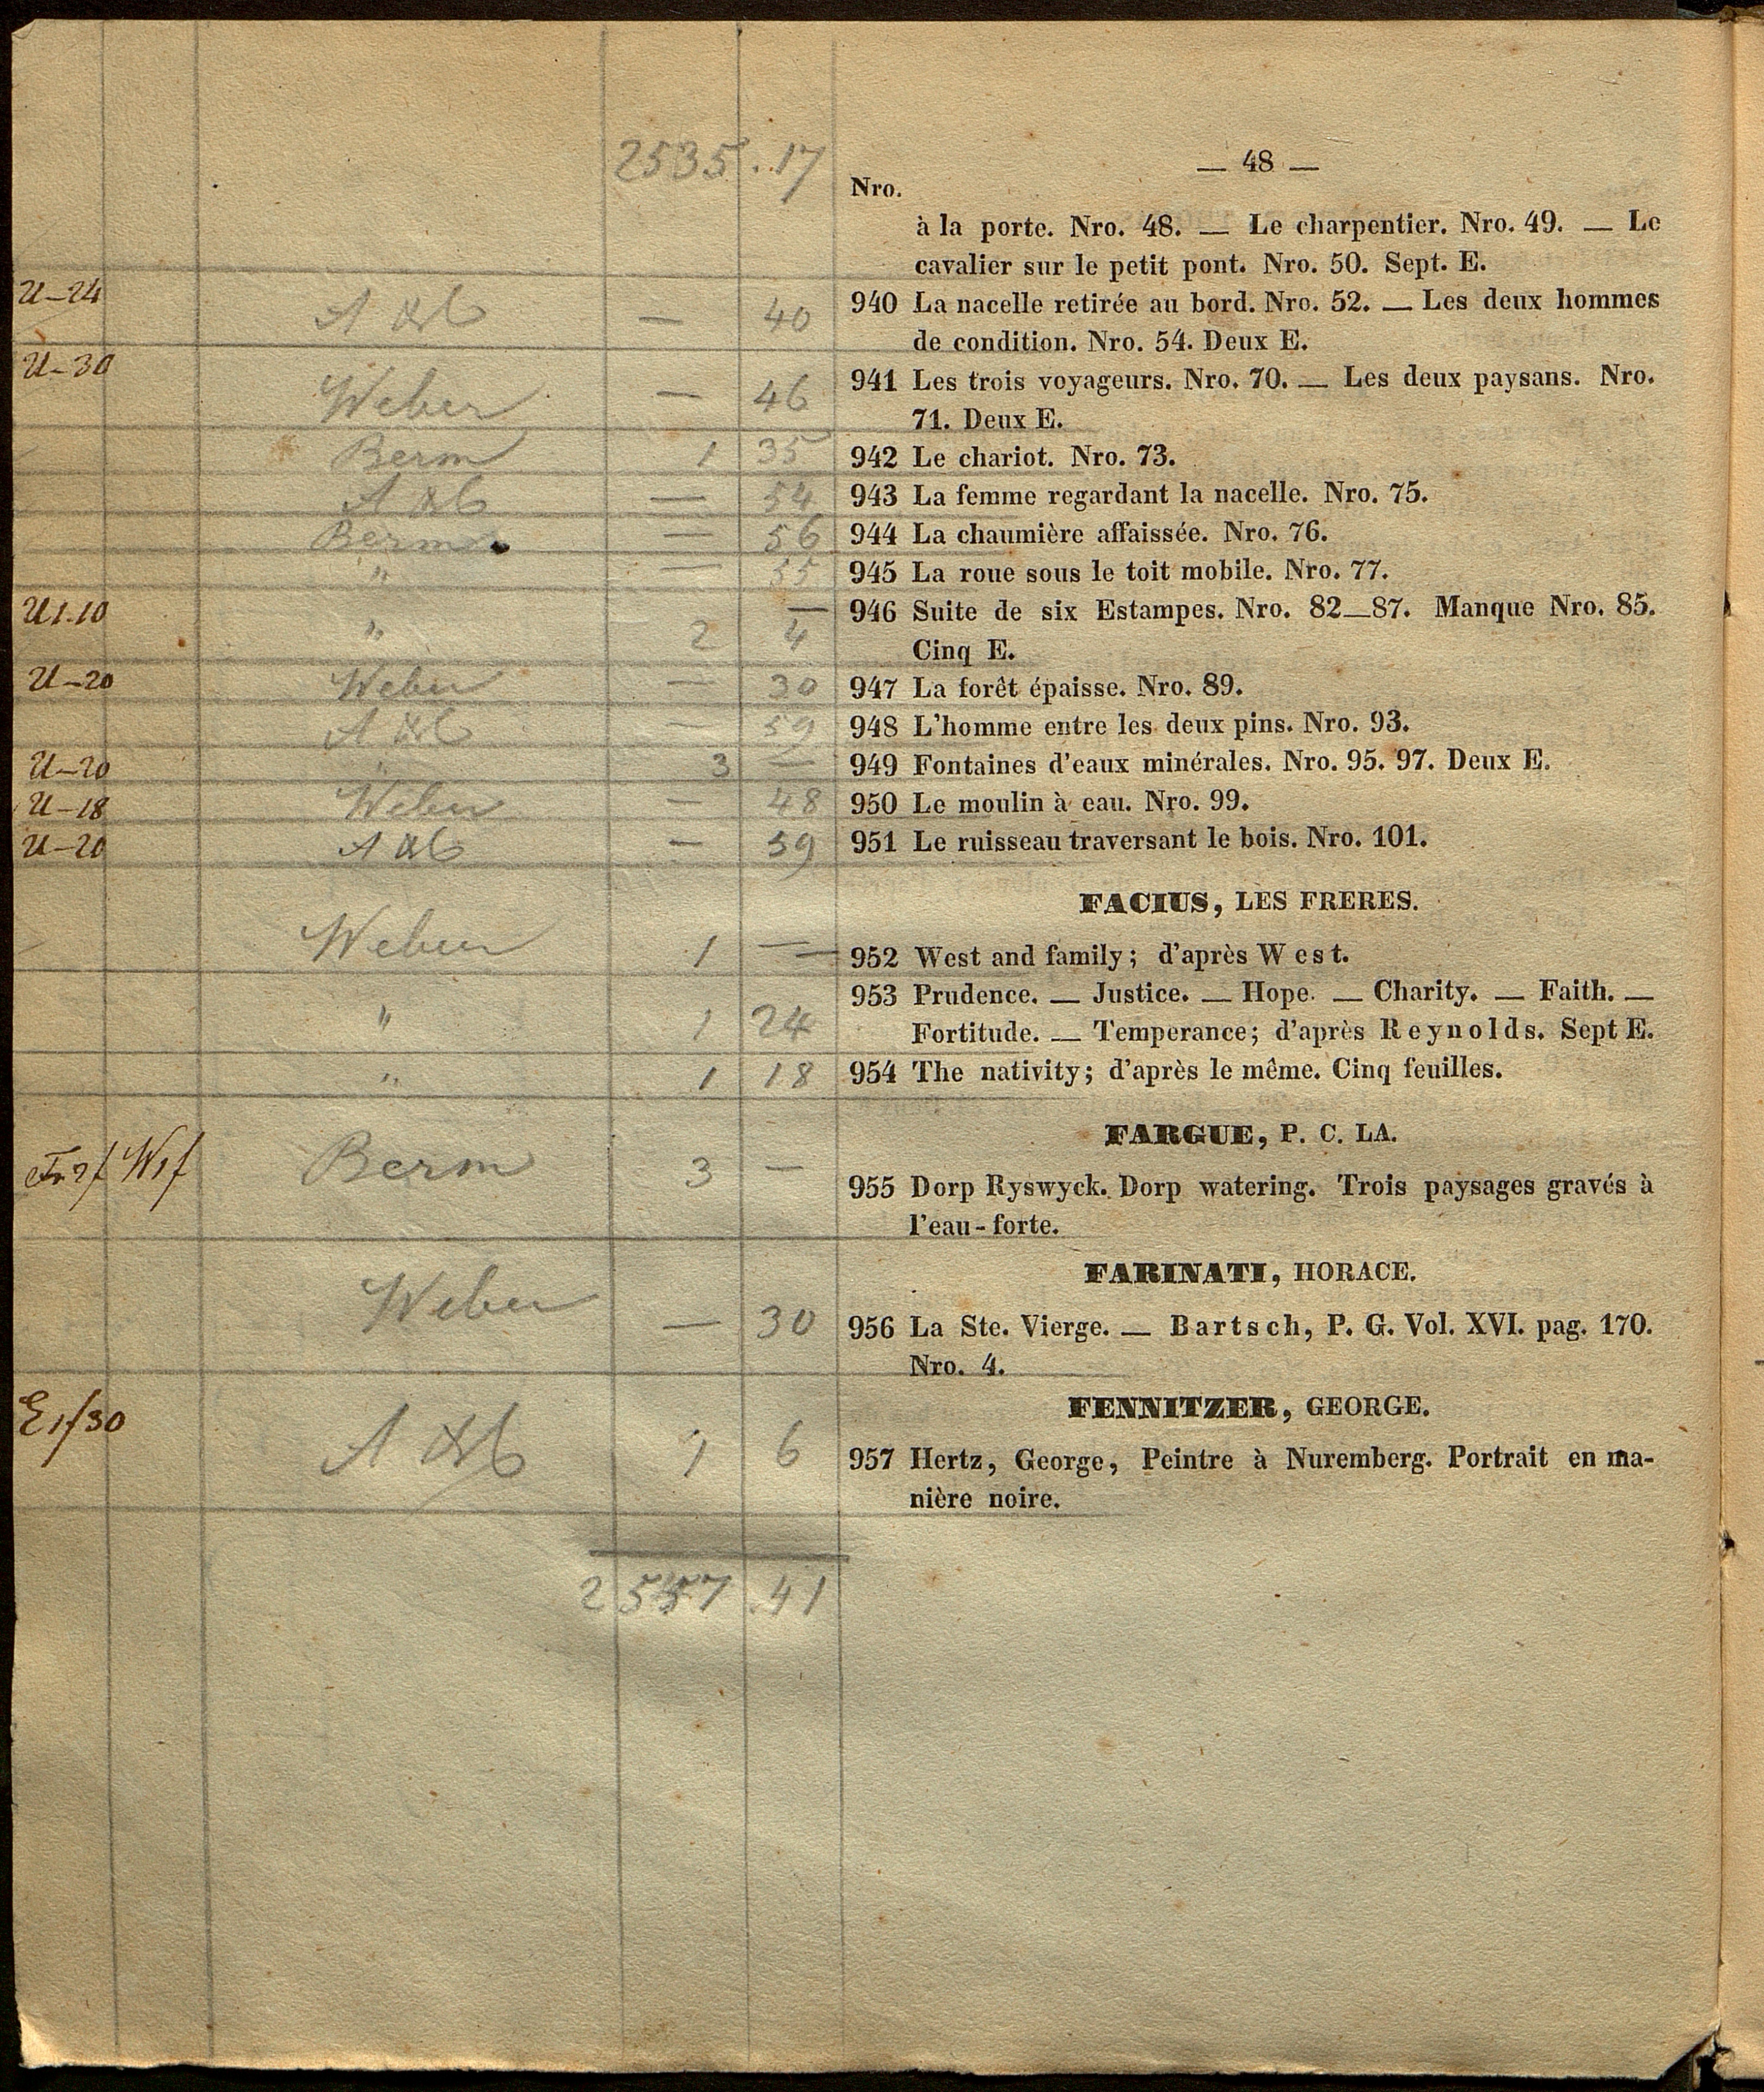 — 48 —
2535 . 17
Nro.
à la porte. Nro. 48. — Le charpentier. Nro. 49. — Le
cavalier sur le petit pont. Nro. 50. Sept. E.
U–24 — 40 940 La nacelle retirée au bord. Nro. 52. — Les deux hommes
de condition. Nro. 54. Deux E.
U–30 Weber — 46 941 Les trois voyageurs. Nro. 70. — Les deux paysans. Nro.
71. Deux E.
Berm 1 35 942 Le chariot. Nro. 73.
— 54 943 La femme regardant la nacelle. Nro. 75.
Berm — 56 944 La chaumière affaissée. Nro. 76.
" — 55 945 La roue sous le toit mobile. Nro. 77.
U1.10 " 2 4 946 Suite de six Estampes. Nro. 82—87. Manque Nro. 85.
Cinq E.
U–20 Weber — 30 947 La forêt épaisse. Nro. 89.
— 59 948 L'homme entre les deux pins. Nro. 93.
U–20 " 3 — 949 Fontaines d'eaux minérales. Nro. 95. 97. Deux E.
U–18 Weber — 48 950 Le moulin à eau. Nro. 99.
U–20 — 59 951 Le ruisseau traversant le bois. Nro. 101.
FACIUS, LES FRERES.
Weber 1 — 952 West and family; d'après West.
953 Prudence. — Justice. — Hope. — Charity. — Faith. —
" 1 24 Fortitude. — Temperance; d'après Reynolds. Sept E.
" 1 18 954 The nativity; d'après le même. Cinq feuilles.
FARGUE, P. C. LA.
Berm 3 — 955 Dorp Ryswyck. Dorp watering. Trois paysages gravés à
l'eau-forte.
FARINATI, HORACE.
Weber — 30 956 La Ste. Vierge. — Bartsch, P. G. Vol. XVI. pag. 170.
Nro. 4.
FENNITZER, GEORGE.
E1f30 1 6 957 Hertz, George, Peintre à Nuremberg. Portrait en ma-
nière noire.
2557 . 41